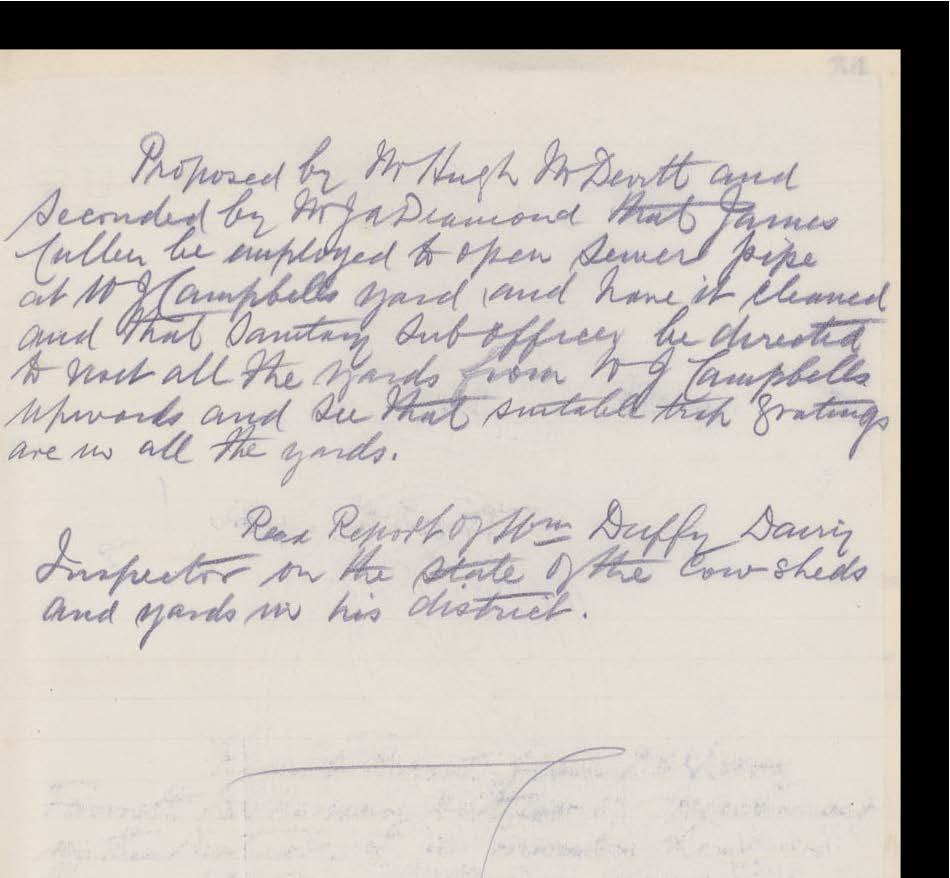 Proposed by Mr Hugh McDevitt and
Seconded by Mr J a Diamond that James
Cullen be employed to open sewer pipe
at W J Campbells yard and have it cleaned
and that Sanitary Sub officer be directed
to visit all the yards from W J Campbells
upwards and see that suitable trap gratings
are in all the yards.
Read Report of Wm Duffy Dairy
Inspector on the state of the Cow sheds
and yards in his district.